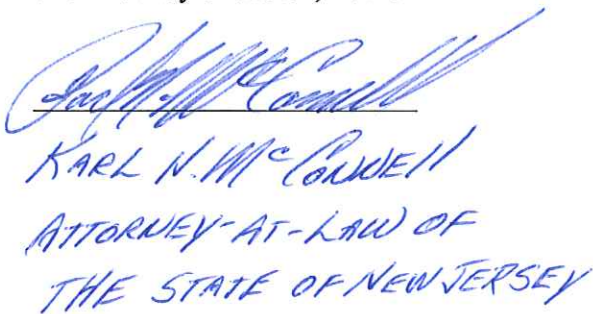 KARL N. McCONNELL
ATTORNEY-AT-LAW OF
THE STATE OF NEW JERSEY